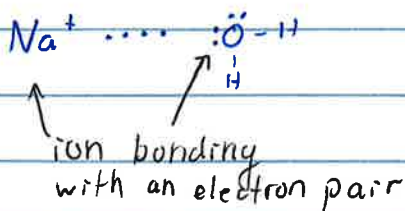 Na⁺ ···· :Ö-H
H
ion bonding
with an electron pair